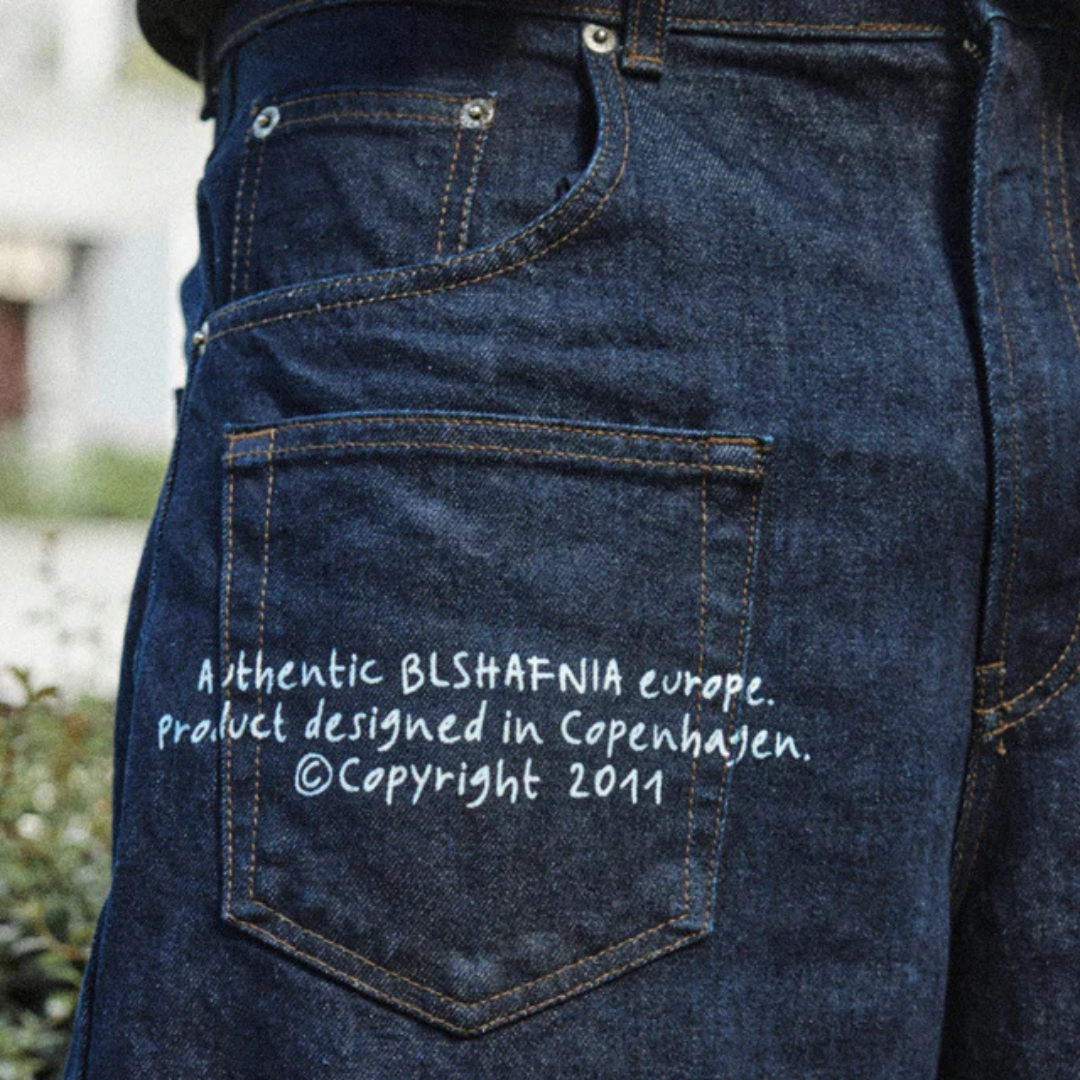 Authentic BLSHAFNIA europe.
Product designed in Copenhagen.
©Copyright 2011